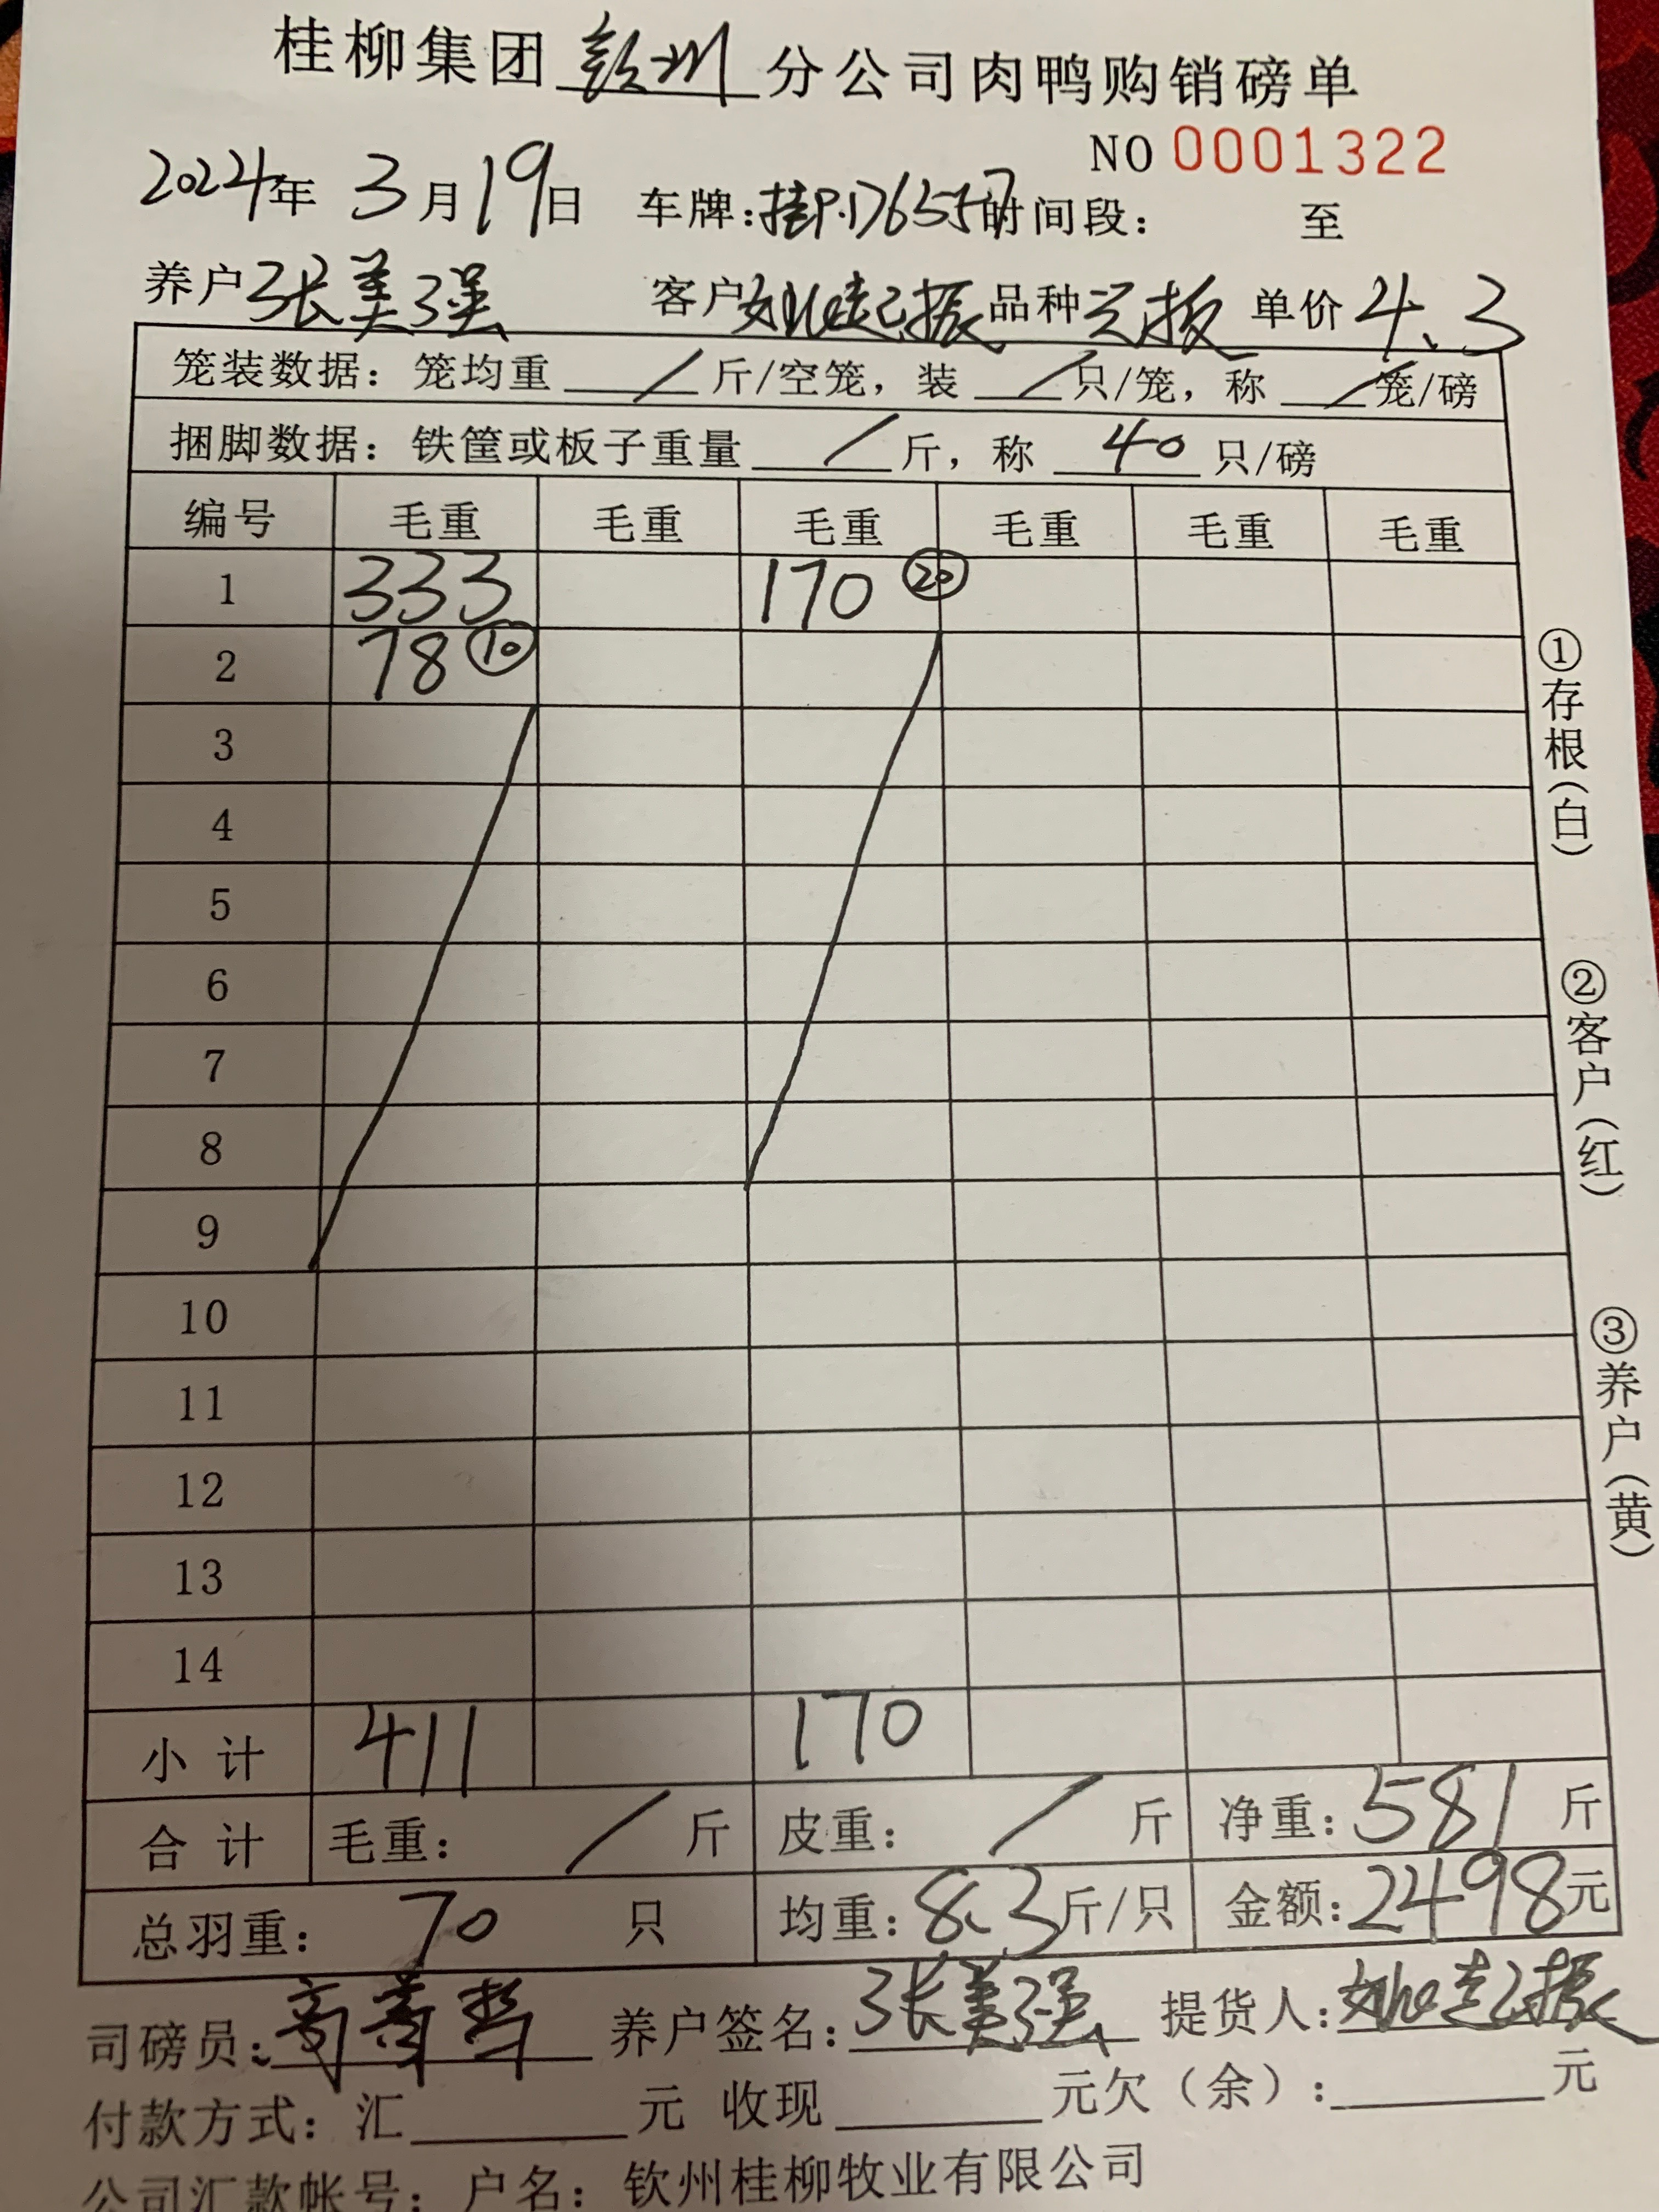 桂柳集团 钦州 分公司肉鸭购销磅单
NO 0001322
2024年 3月19日 车牌：桂P·D6557 时间段： 至
养户 张美强 客户 姚起振 品种 单价 4.3
笼装数据：笼均重 / 斤/空笼，装 / 只/笼，称 / 笼/磅
捆脚数据：铁筐或板子重量 / 斤，称 40 只/磅
编号 毛重 毛重 毛重 毛重 毛重 毛重
1 333 170 ⑳
2 78 ⑩
3
4
5
6
7
8
9
10
11
12
13
14
小计 411 170
合计 毛重： / 斤 皮重： / 斤 净重：581 斤
总羽重： 70 只 均重：8.3斤/只 金额：2498元
司磅员： 养户签名：张美强 提货人：姚起振
付款方式：汇 元 收现 元欠（余）： 元
公司汇款帐号：户名：钦州桂柳牧业有限公司
①存根（白）
②客户（红）
③养户（黄）